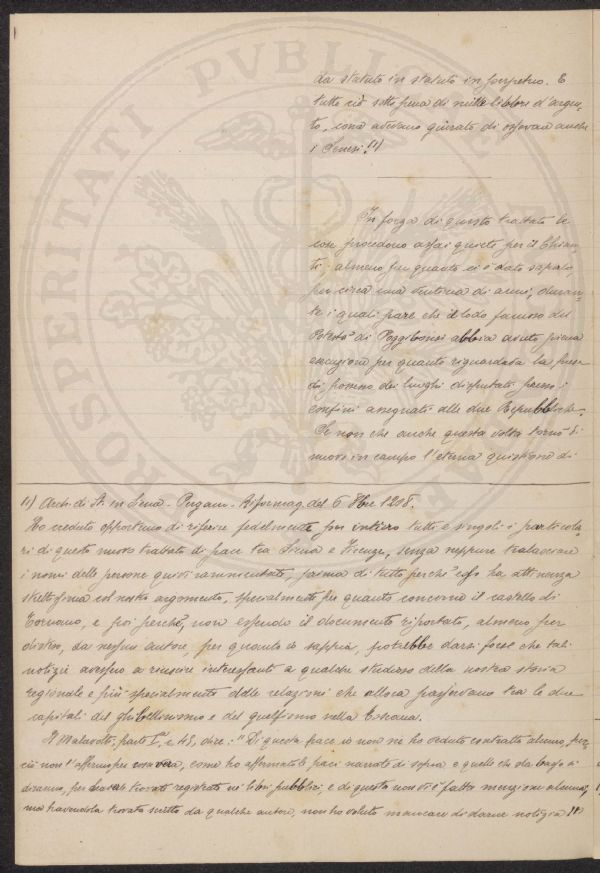 da statuto in statuto in perpetuo. E
tutto ciò sotto pena di mille libbre d'argen-
to, come avevano giurato di osservare anche
i Senesi. (1)
In forza di questo trattato le
cose procedono assai quiete per il Chian-
ti, almeno per quanto ci è dato saperlo,
per circa una ventina di anni, duran-
te i quali pare che il lodo famoso del
Potestà di Poggibonsi abbia avuto piena
esecuzione per quanto riguardava la presa
di possesso dei luoghi disputati presso i
confini assegnati alle due Repubbliche.
Se non che anche questa volta tornò di
nuovo in campo l'eterna quistione di
(1) Arch. di St. in Siena - Pergam. Riformag. del 6 1208.
Ho creduto opportuno di riferire fedelmente per intiero tutti e singoli i particola-
ri di questo nuovo trattato di pace tra Siena e Firenze, senza neppure tralasciare
i nomi delle persone quivi rammentate, prima di tutto perchè esso ha attinenza
strettissima col nostro argomento, specialmente per quanto concerne il castello di
Tornano, e poi perchè, non essendo il documento riportato, almeno per
disteso, da nessun autore, per quanto io sappia, potrebbe darsi forse che tali
notizie avessero a riuscire interessanti a qualche studioso della nostra storia
regionale e più specialmente delle relazioni che allora passavano tra le due
capitali del ghibellinismo e del guelfismo nella Toscana.
Il Malavolti, parte Iª, c. 45, dice: "Di questa pace io non ne ho veduto contratto alcuno, per-
ciò non l'affermo per cosa vera, come ho affermato le paci narrate di sopra e quelle che da basso si
diranno, per trovate registrate ne' libri pubblici; e di questa non vi è fatta menzione alcuna;
ma havendola trovata scritta da qualche autore, non ho voluto mancare di darne notizia."